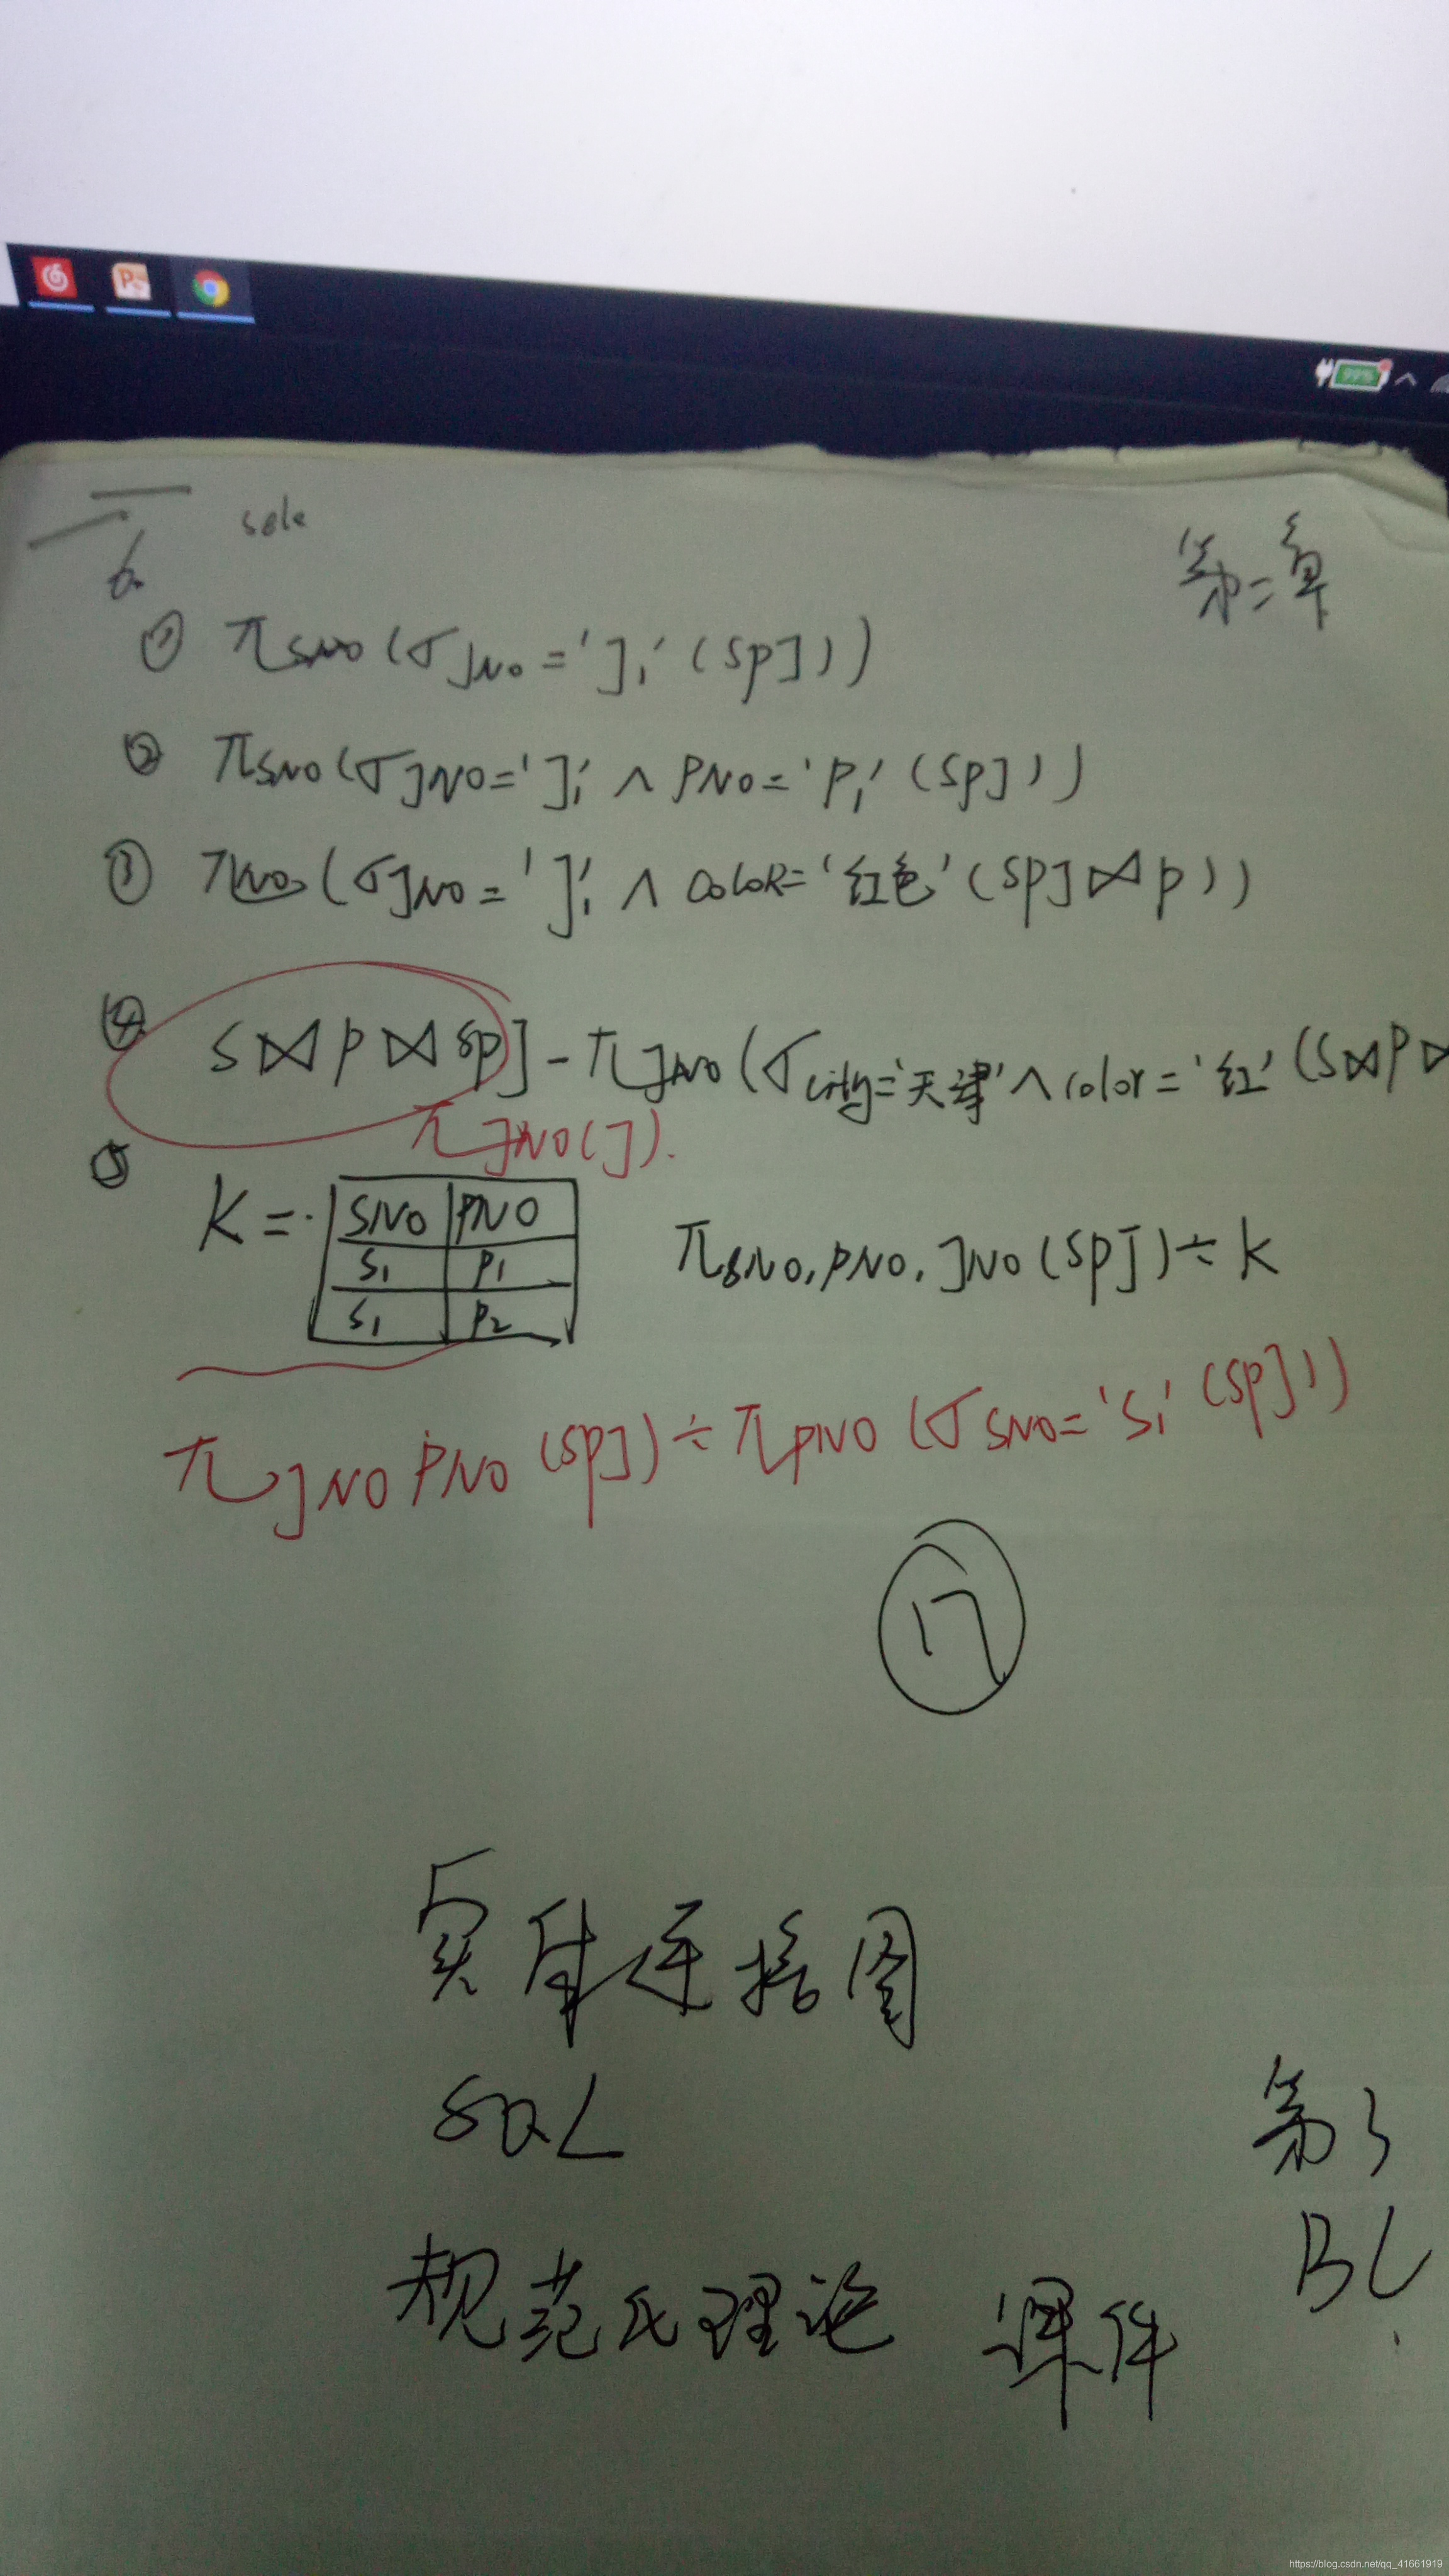 99%
sele
第二章
6.
① π SNO (σ JNO = 'J₁' (SPJ))
② π SNO (σ JNO = 'J₁' ∧ PNO = 'P₁' (SPJ))
③ (σ JNO = 'J₁' ∧ COLOR = '红色' (SPJ ⋈ P))
④ S ⋈ P ⋈ SPJ - π JNO (σ city = '天津' ∧ color = '红' (S ⋈ P ⋈
π JNO (J).
⑤
K = SNO PNO
S₁ P₁
S₁ P₂
π SNO, PNO, JNO (SPJ) ÷ K
π JNO PNO (SPJ) ÷ π PNO (σ SNO = 'S₁' (SPJ))
17
图
SQL
第3
BC
规范式理论 课件
https://blog.csdn.net/qq_41661919